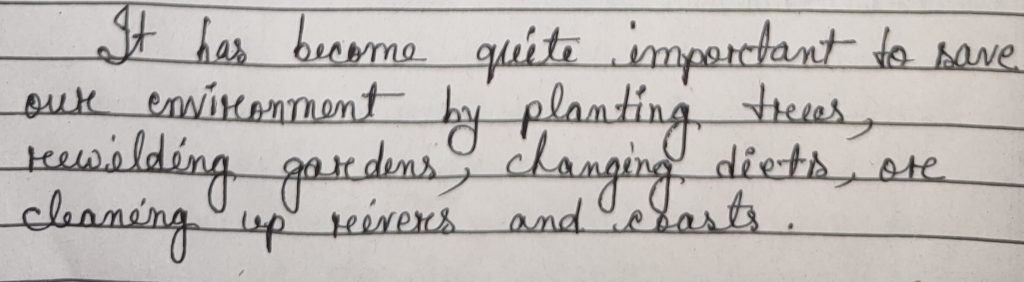 It has become quite important to save
our environment by planting trees,
rewilding gardens, changing diets, or
cleaning up rivers and coasts.